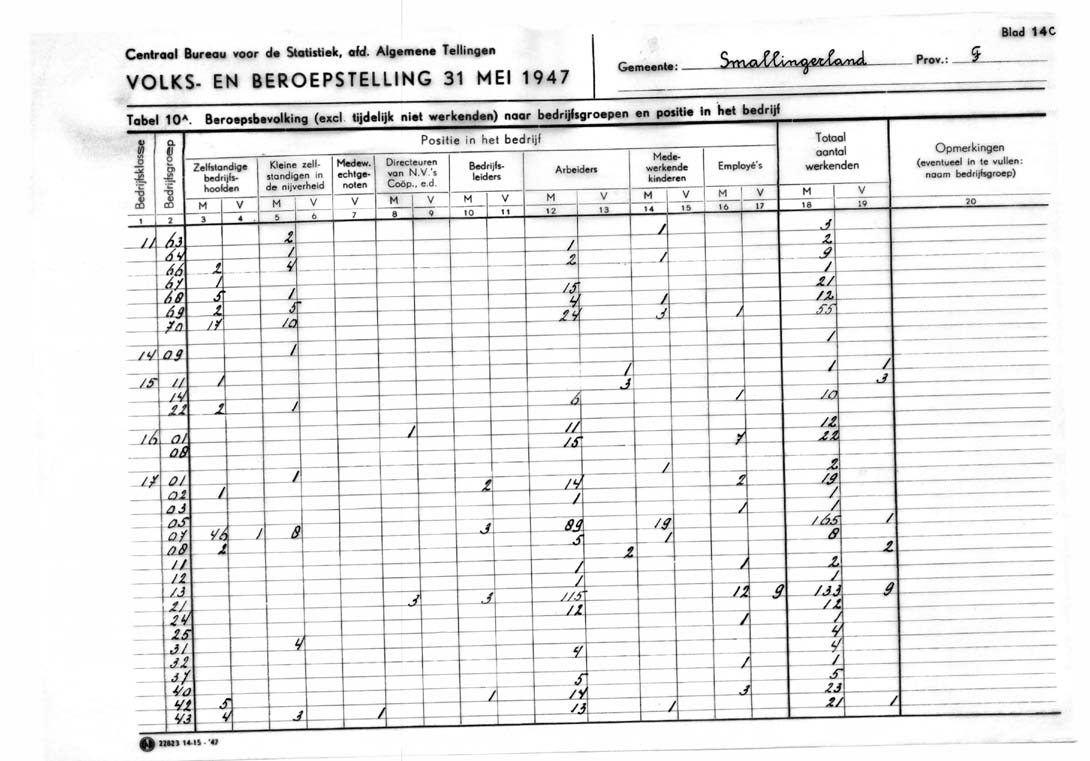 Blad 14C
Centraal Bureau voor de Statistiek, afd. Algemene Tellingen
VOLKS- EN BEROEPSTELLING 31 MEI 1947
Gemeente: Smallingerland Prov.: F
Tabel 10A. Beroepsbevolking (excl. tijdelijk niet werkenden) naar bedrijfsgroepen en positie in het bedrijf
Bedrijfsklasse
Bedrijfsgroep
Positie in het bedrijf
Zelfstandige bedrijfs-hoofden
Kleine zelf-standigen in de nijverheid
Medew. echtge-noten
Directeuren van N.V.'s Coöp., e.d.
Bedrijfs-leiders
Arbeiders
Mede-werkende kinderen
Employé's
Totaal aantal werkenden
Opmerkingen (eventueel in te vullen: naam bedrijfsgroep)
M V M V V M V M V M V M V M V M V
1 2 3 4 5 6 7 8 9 10 11 12 13 14 15 16 17 18 19 20
11 63 2 1 3
64 1 1 2
66 2 4 2 1 9
67 1 1
68 5 1 15 21
69 2 5 4 1 12
70 17 10 24 3 1 55
14 09 1 1
15 11 1 1 1 1
14 3 3
22 2 1 6 1 10
16 01 1 11 12
08 15 7 22
17 01 1 1 2
02 1 2 14 2 19
03 1 1
05 1 1
07 46 1 8 3 89 19 165 1
08 2 5 1 8
11 2 2
12 1 1 2
13 1 1
21 3 3 115 12 9 133 9
24 12 12
25 1 1
31 4 4
32 4 4
37 1 1
40 5 5
42 5 1 14 3 23
43 4 3 1 13 1 21 1
22823 14-15 - '47